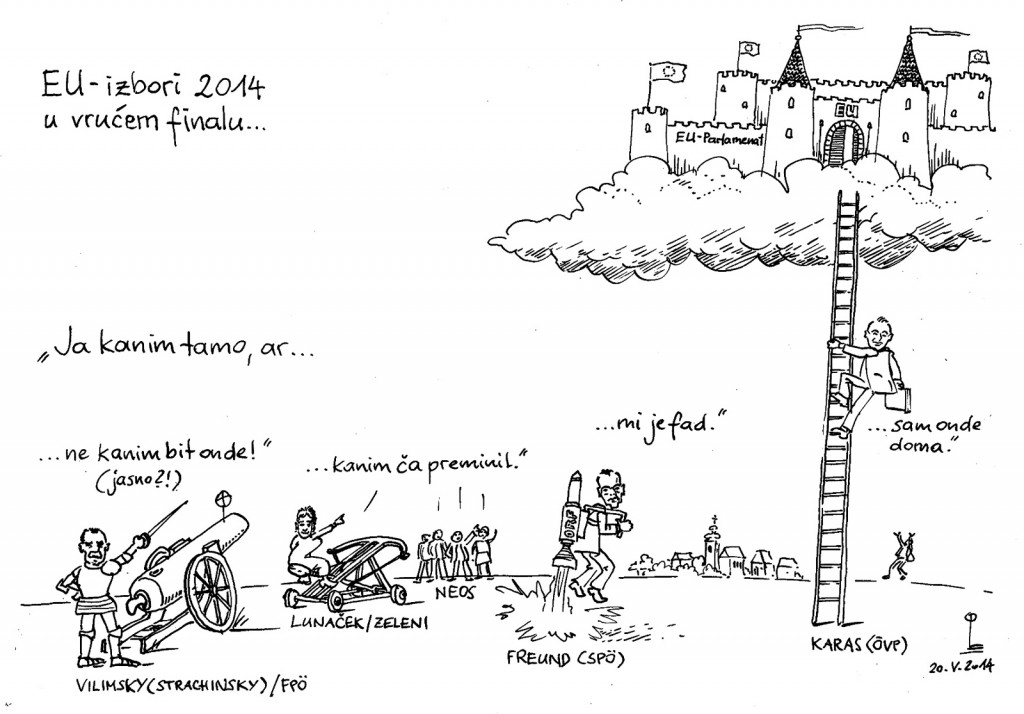 EU-izbori 2014
u vrućem finalu...
EU
EU-Parlamenat
„Ja kanim tamo, ar...
...ne kanim bit onde!“
(jasno?!)
...kanim ča preminit.“
...mi je fad.“
...sam onde
doma.“
ORF
NEOS
LUNAČEK/ZELENI
FREUND (SPÖ)
KARAS (ÖVP)
VILIMSKY (STRACHINSKY) / FPÖ
20.V.2014